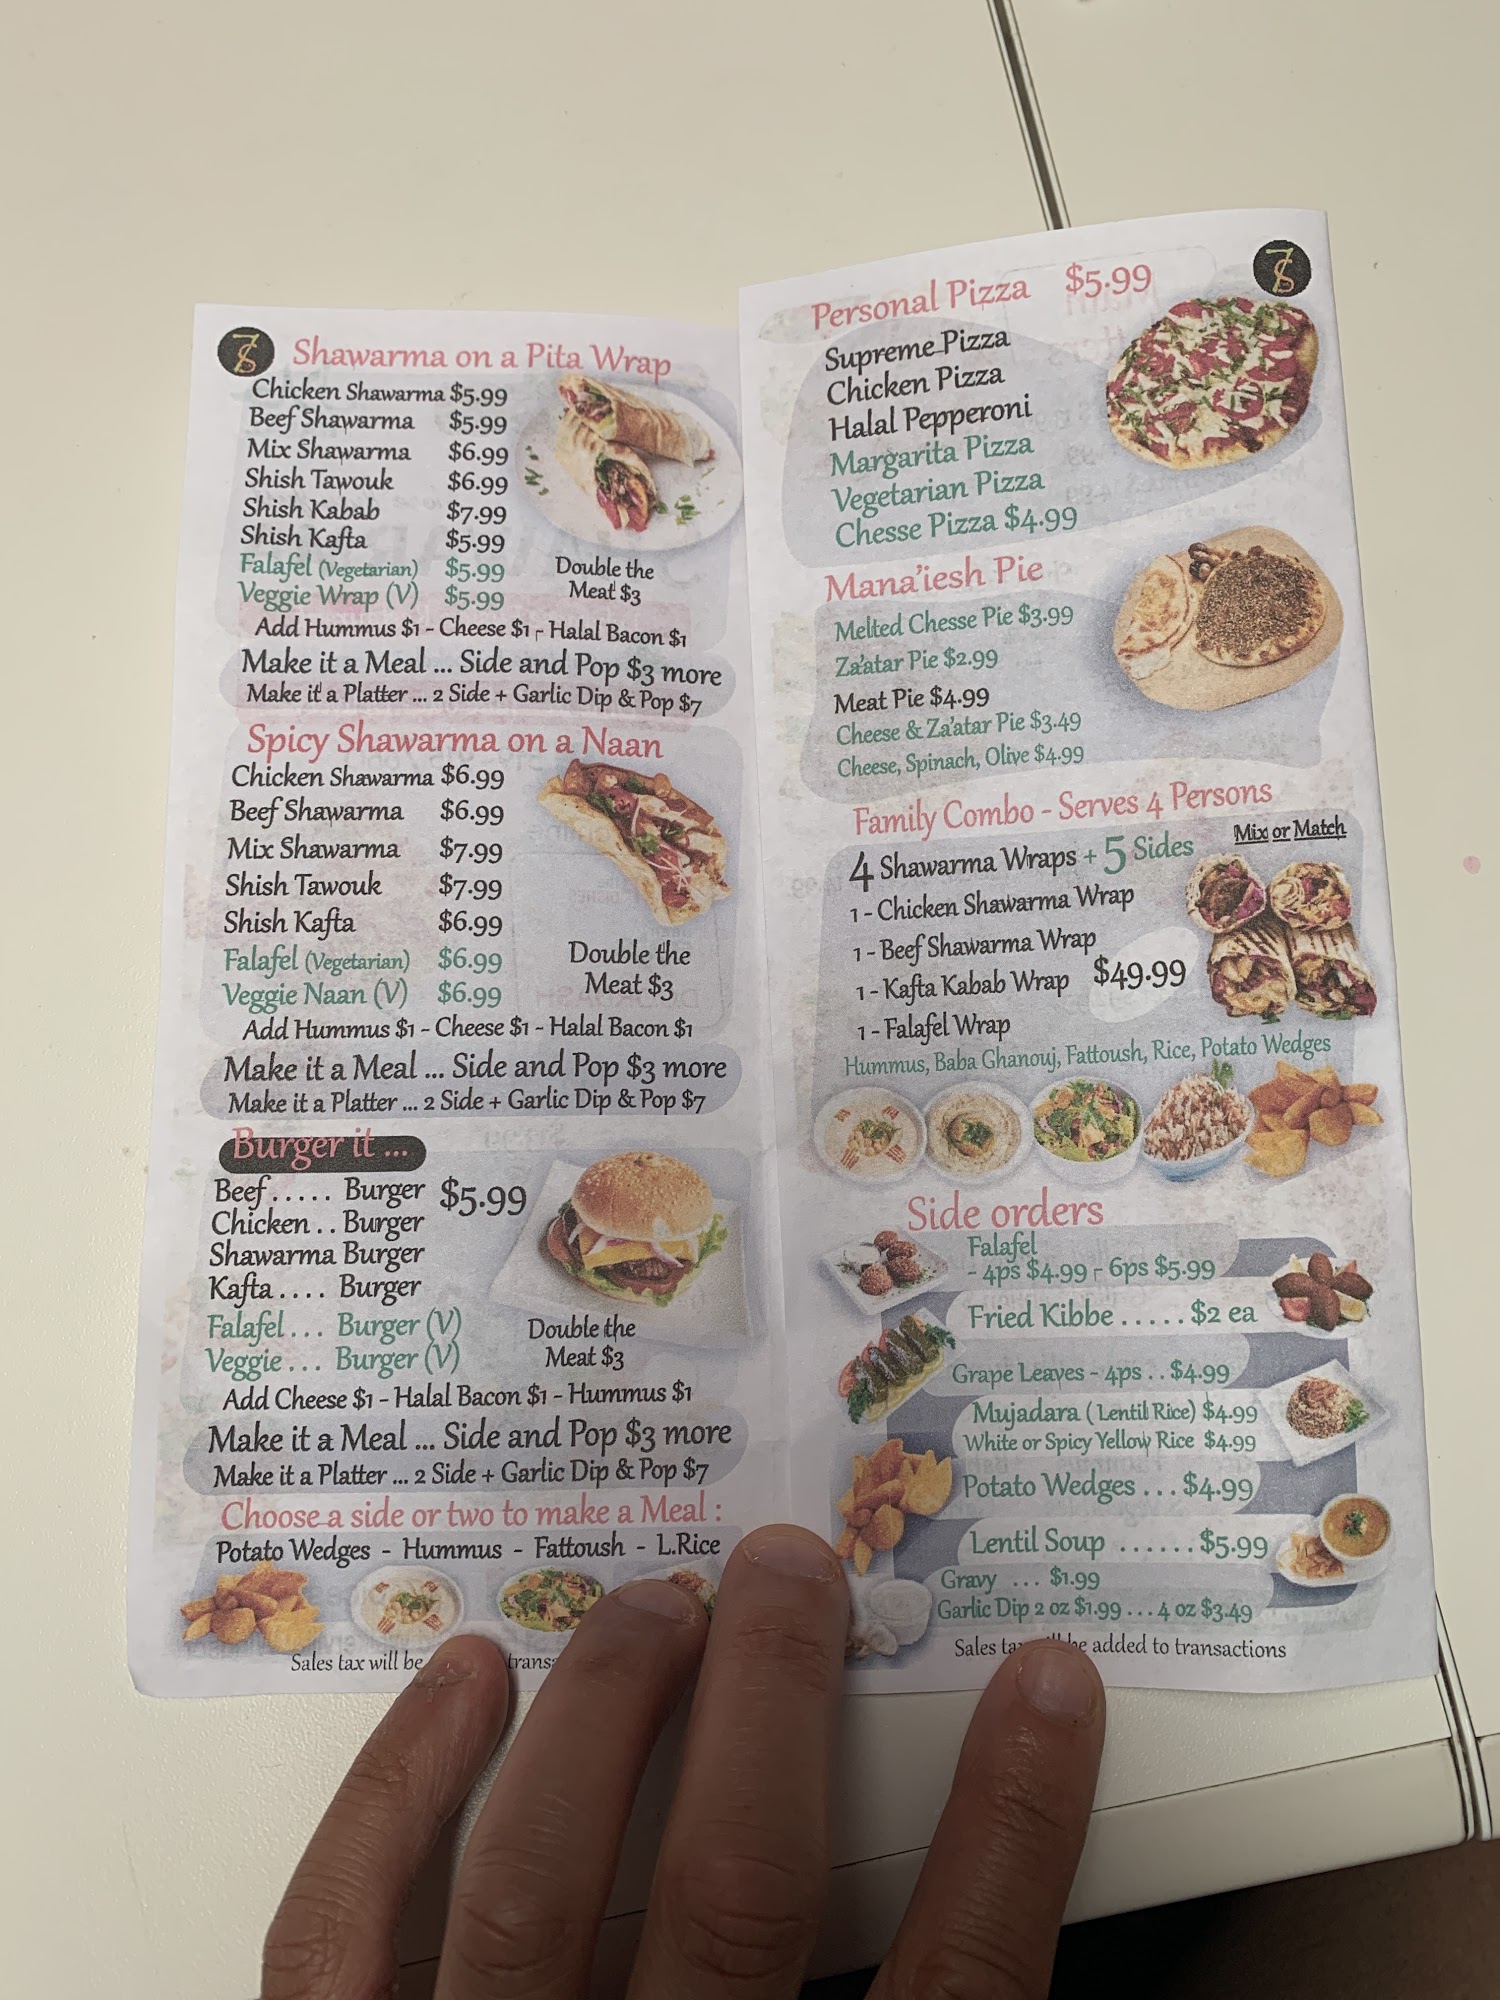 7S
Shawarma on a Pita Wrap
Chicken Shawarma $5.99
Beef Shawarma $5.99
Mix Shawarma $6.99
Shish Tawouk $6.99
Shish Kabab $7.99
Shish Kafta $5.99
Falafel (Vegetarian) $5.99
Veggie Wrap (V) $5.99
Double the
Meat $3
Add Hummus $1 - Cheese $1 - Halal Bacon $1
Make it a Meal ... Side and Pop $3 more
Make it a Platter ... 2 Side + Garlic Dip & Pop $7
Spicy Shawarma on a Naan
Chicken Shawarma $6.99
Beef Shawarma $6.99
Mix Shawarma $7.99
Shish Tawouk $7.99
Shish Kafta $6.99
Falafel (Vegetarian) $6.99
Veggie Naan (V) $6.99
Double the
Meat $3
Add Hummus $1 - Cheese $1 - Halal Bacon $1
Make it a Meal ... Side and Pop $3 more
Make it a Platter ... 2 Side + Garlic Dip & Pop $7
Burger it ...
Beef ..... Burger $5.99
Chicken .. Burger
Shawarma Burger
Kafta .... Burger
Falafel ... Burger (V)
Veggie ... Burger (V)
Double the
Meat $3
Add Cheese $1 - Halal Bacon $1 - Hummus $1
Make it a Meal ... Side and Pop $3 more
Make it a Platter ... 2 Side + Garlic Dip & Pop $7
Choose a side or two to make a Meal :
Potato Wedges - Hummus - Fattoush - L.Rice
Sales tax will be
7S
Personal Pizza $5.99
Supreme Pizza
Chicken Pizza
Halal Pepperoni
Margarita Pizza
Vegetarian Pizza
Chesse Pizza $4.99
Mana'iesh Pie
Melted Chesse Pie $3.99
Za'atar Pie $2.99
Meat Pie $4.99
Cheese & Za'atar Pie $3.49
Cheese, Spinach, Olive $4.99
Family Combo - Serves 4 Persons
Mix or Match
4 Shawarma Wraps + 5 Sides
1 - Chicken Shawarma Wrap
1 - Beef Shawarma Wrap
1 - Kafta Kabab Wrap $49.99
1 - Falafel Wrap
Hummus, Baba Ghanouj, Fattoush, Rice, Potato Wedges
Side orders
Falafel
- 4ps $4.99 - 6ps $5.99
Fried Kibbe ..... $2 ea
Grape Leaves - 4ps .. $4.99
Mujadara ( Lentil Rice) $4.99
White or Spicy Yellow Rice $4.99
Potato Wedges ... $4.99
Lentil Soup ...... $5.99
Gravy ... $1.99
Garlic Dip 2 oz $1.99 ... 4 oz $3.49
Sales be added to transactions